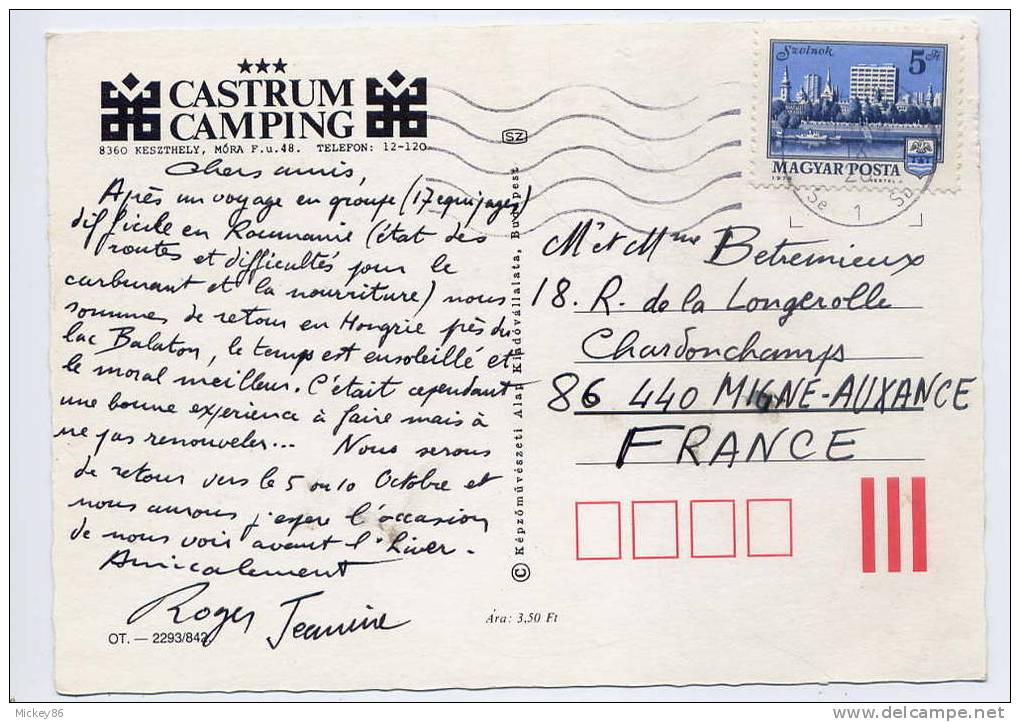 ★★★
CASTRUM
CAMPING
8360 KESZTHELY, MÓRA F.u.48. TELEFON: 12-120
Chers amis,
Après un voyage en groupe (17 equipages)
difficile en Roumanie (état des
routes et difficultés pour le
carburant et la nourriture) nous
sommes de retour en Hongrie près du
lac Balaton, le temps est ensoleillé et
le moral meilleur. C'était cependant
une bonne experience à faire mais à
ne pas renouveler... Nous serons
de retour vers le 5 ou 10 Octobre et
nous aurons j'espere l'occasion
de nous voir avant l'hiver.
Amicalement
Roger Jeannine
OT. — 2293/842
Ára: 3,50 Ft
© Képzőművészeti Alap Kiadóvállalata, Budapest
SZ
Szolnok
5 Ft
MAGYAR POSTA
1
Mr et Mme Betremieux
18. R. de la Longerolle
Chardonchamps
86 440 MIGNE-AUXANCE
FRANCE
Mickey86
www.delcampe.net